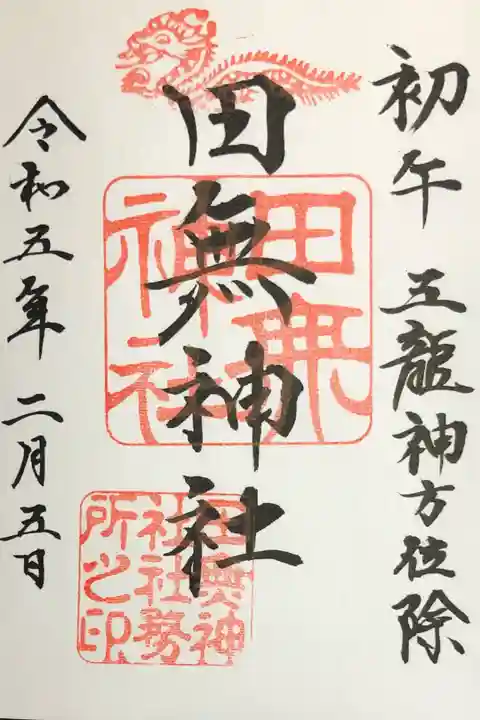 初午 五龍神方位除
田無神社
田無神社
田無神社社務所之印
令和五年 二月五日